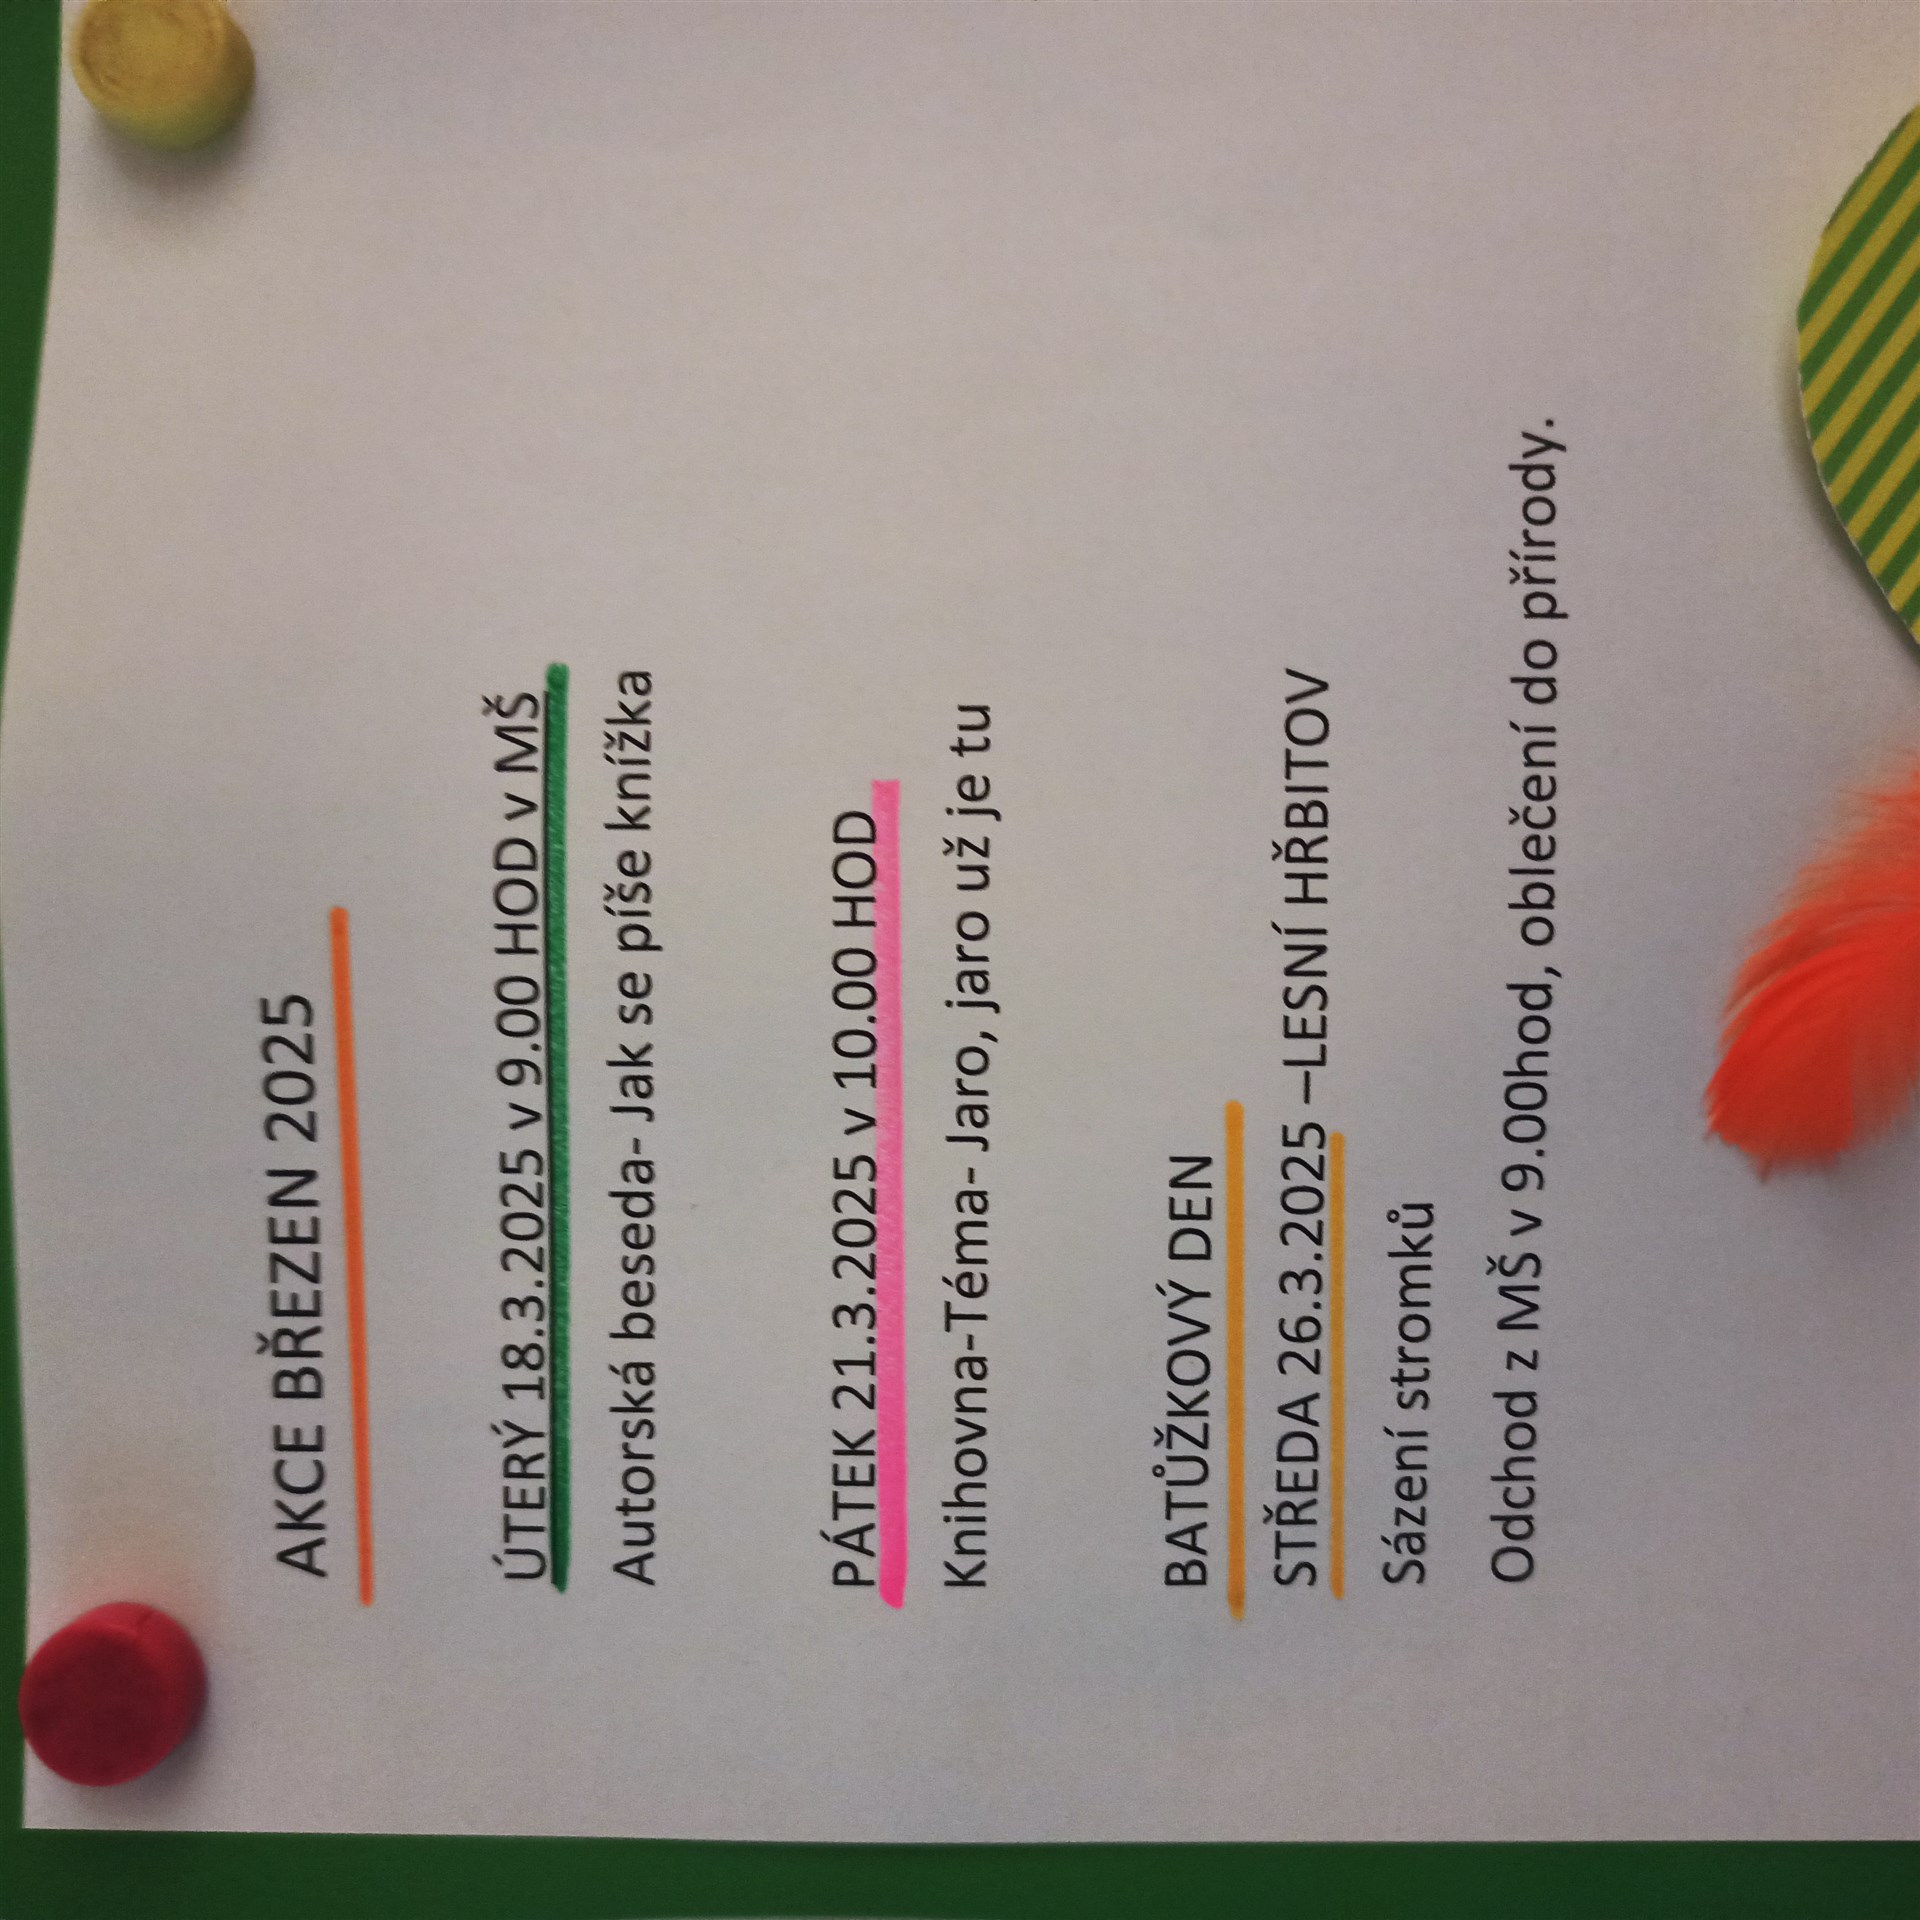 AKCE BŘEZEN 2025
ÚTERÝ 18.3.2025 v 9.00 HOD v MŠ
Autorská beseda- Jak se píše knížka
PÁTEK 21.3.2025 v 10.00 HOD
Knihovna-Téma- Jaro, jaro už je tu
BATŮŽKOVÝ DEN
STŘEDA 26.3.2025 –LESNÍ HŘBITOV
Sázení stromků
Odchod z MŠ v 9.00hod, oblečení do přírody.